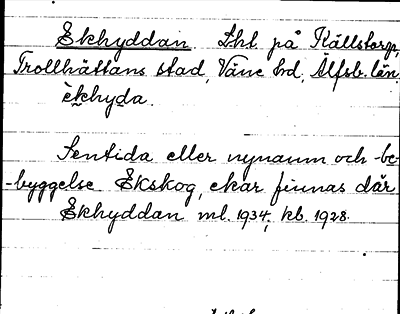 Ekhyddan Lht. på Källstorp,
Trollhättans stad, Väne hd, Älfsb. län.
èkhyda.
Sentida eller nynamn och -be-
-byggelse Ekskog, ekar finnas där
Ekhyddan ml. 1934, kb. 1928.